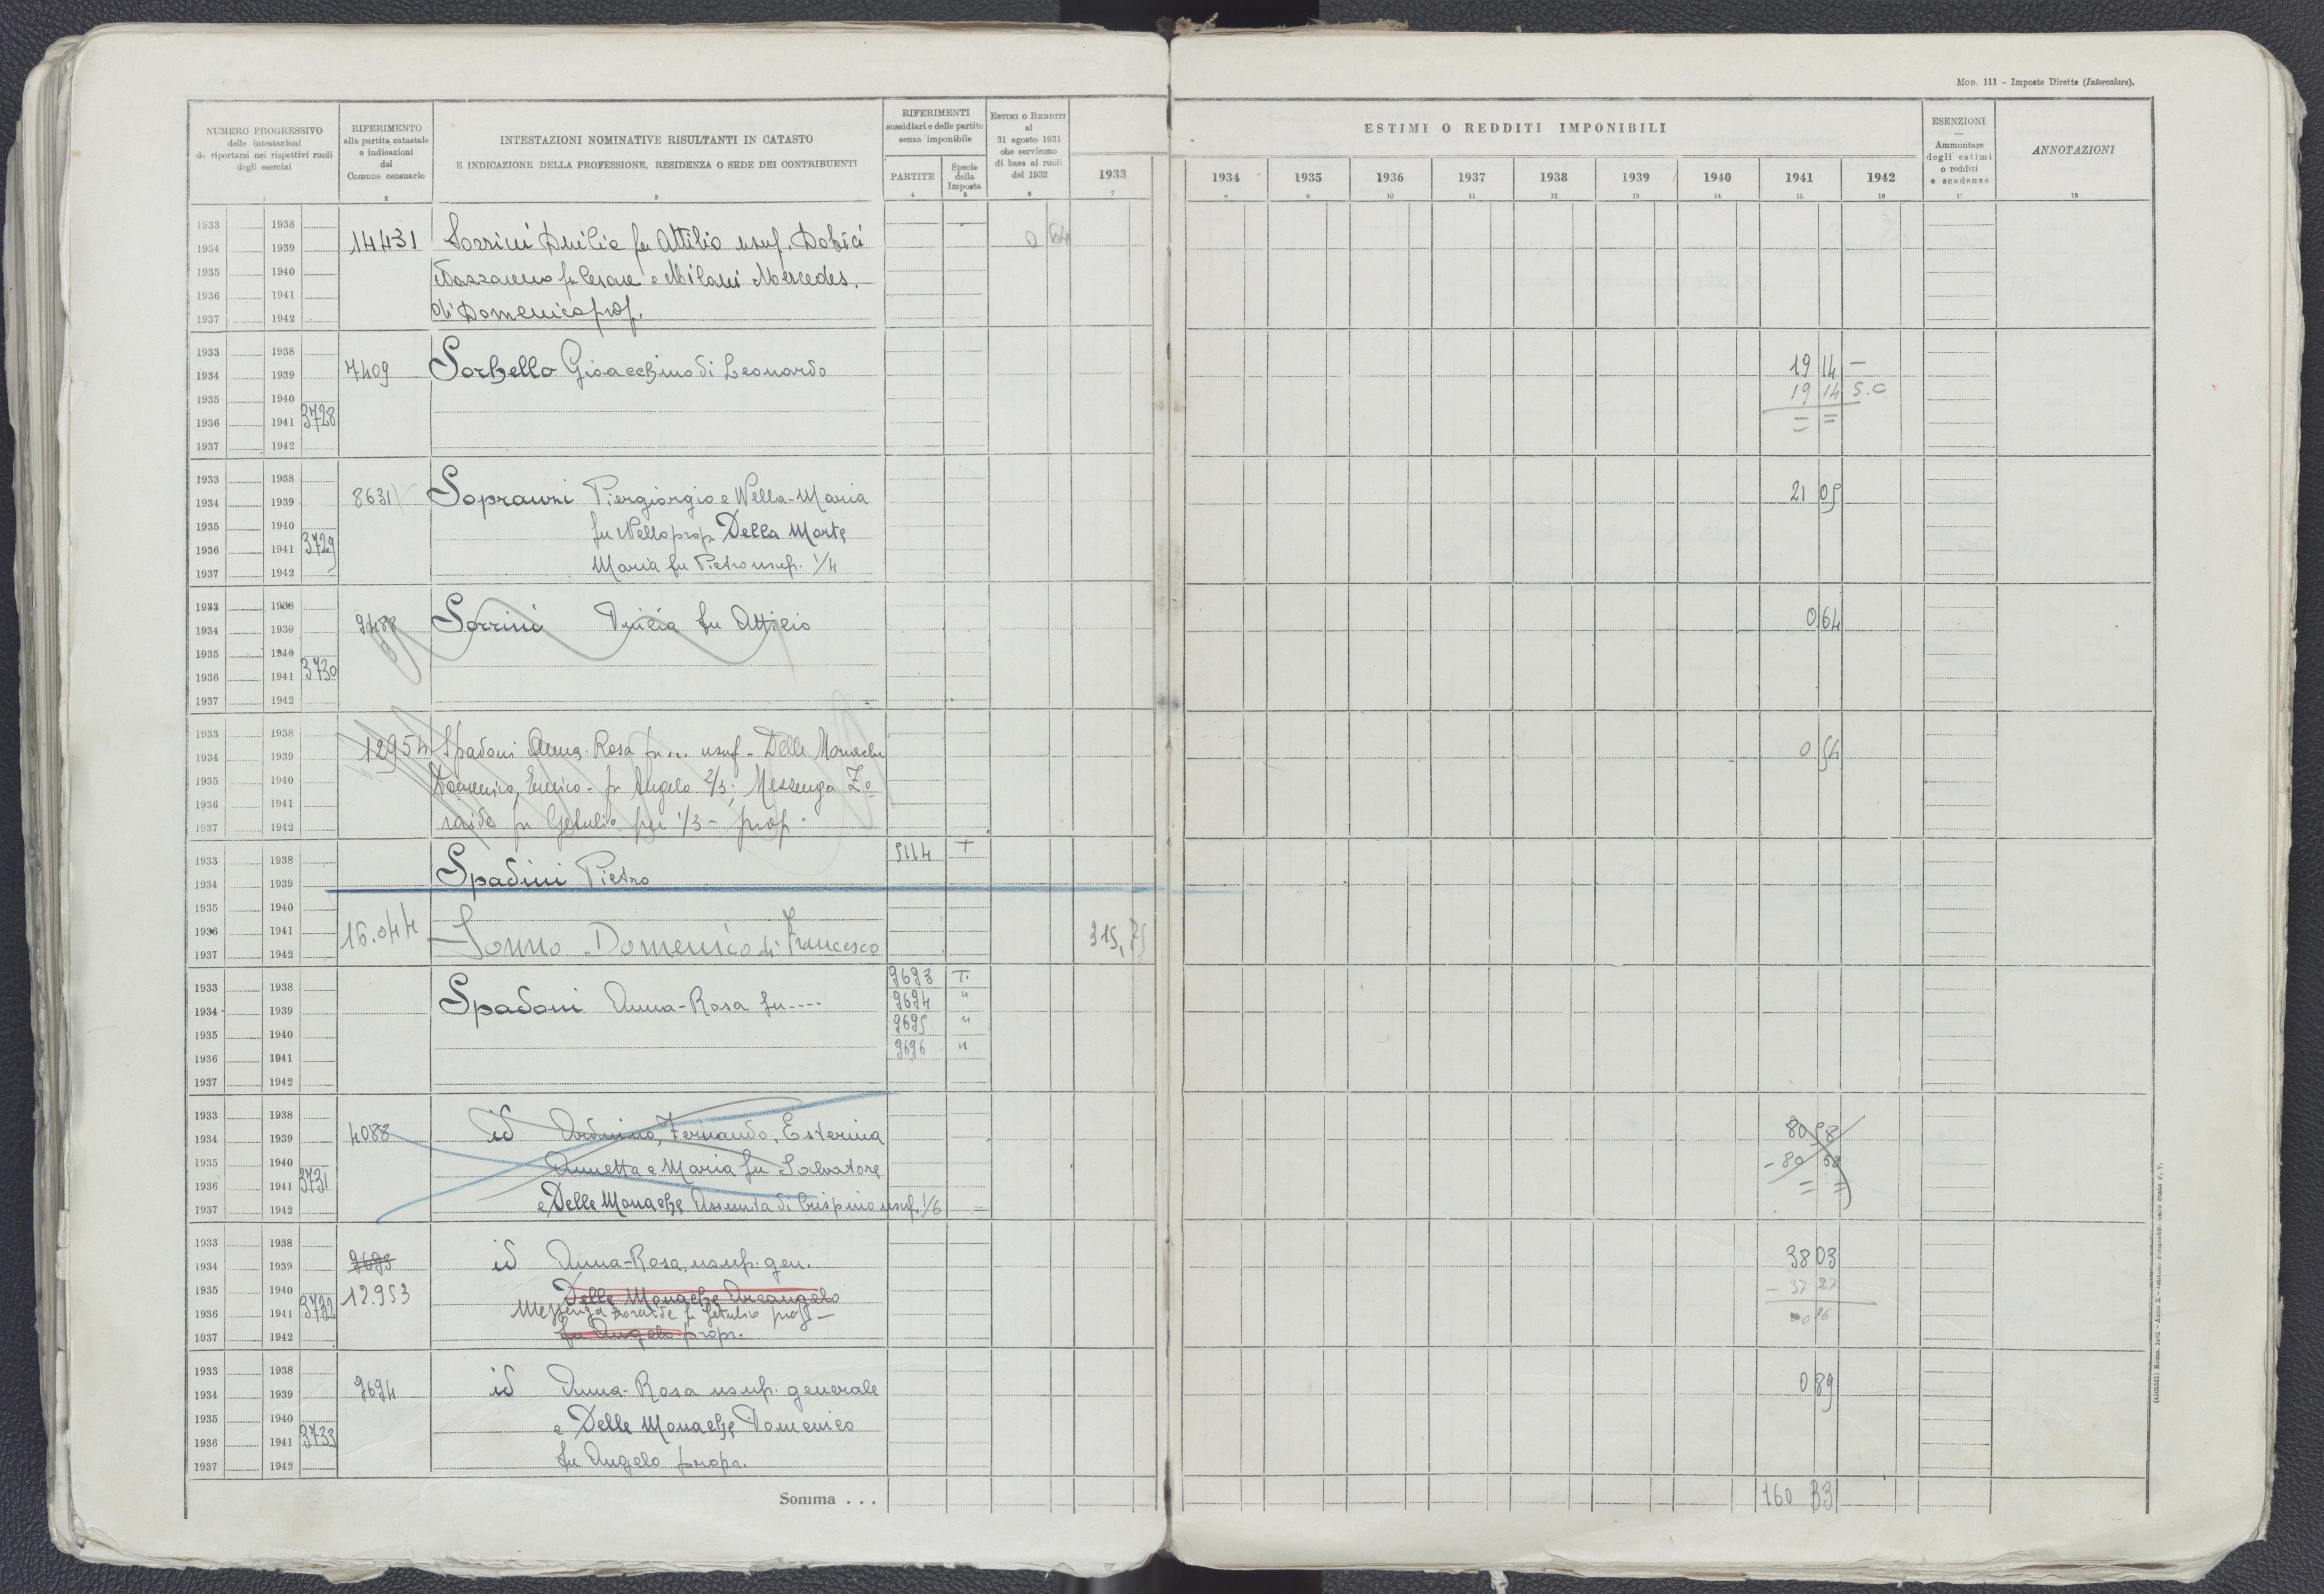 MOD. 111 – Imposte Dirette (Intercalare).
NUMERO PROGRESSIVO delle intestazioni da riportarsi nei rispettivi ruoli degli esercizi
RIFERIMENTO alla partita catastale e indicazioni del Comune censuario
2
INTESTAZIONI NOMINATIVE RISULTANTI IN CATASTO
E INDICAZIONE DELLA PROFESSIONE, RESIDENZA O SEDE DEI CONTRIBUENTI
3
RIFERIMENTI sussidiari e delle partite senza imponibile
PARTITE
4
Specie della Imposta
5
ESTIMI O REDDITI al 31 agosto 1931 che servirono di base ai ruoli del 1932
6
1933
7
ESTIMI O REDDITI IMPONIBILI
1934 1935 1936 1937 1938 1939 1940 1941 1942
8 9 10 11 12 13 14 15 16
ESENZIONI
—
Ammontare degli estimi o redditi e scadenze
17
ANNOTAZIONI
18
1933 1938
1934 1939 14431 Sorrini Duilia fu Attilio usuf. Dobici 0 64
1935 1940 Nazzareno fu Cesare e Milani Mercedes.
1936 1941 di Domenico prop.
1937 1942
1933 1938
1934 1939 7409 Sorbello Gioacchino di Leonardo 19 14 –
1935 1940 19 14 S.C
1936 1941 3728 = =
1937 1942
1933 1938
1934 1939 8631 Sopranzi Piergiorgio e Nella-Maria 21 05
1935 1940 fu Nello prop. Della Morte
1936 1941 3729 Maria fu Pietro usuf. 1/4
1937 1942
1933 1938
1934 1939 9488 Sorrini Duilia fu Attilio 0,64
1935 1940
1936 1941 3730
1937 1942
1933 1938
1934 1939 12954 Spadoni Anna-Rosa fu... usuf - Delle Monache 0 54
1935 1940 Domenico, Enrico - fu Angelo 2/3; Mezzenga Zo
1936 1941 raide fu Getulio per 1/3 - prop.
1937 1942
1933 1938 5114 T
1934 1939 Spadini Pietro
1935 1940
1936 1941 16.044 Sonno Domenico di Francesco 315,75
1937 1942
1933 1938 9693 T.
1934 1939 Spadoni Anna-Rosa fu ---- 9694 "
1935 1940 9695 "
1936 1941 9696 "
1937 1942
1933 1938
1934 1939 4088 id Fernando, Esterina 80 58
1935 1940 Annetta e Maria fu Salvatore - 80 58
1936 1941 3731 e Delle Monache Assunta di Crispino usuf. 1/6 = =
1937 1942
1933 1938
1934 1939 9693 id Anna-Rosa, usuf. gen. 38 03
1935 1940 12.953 Delle Monache Arcangelo - 37 27
1936 1941 3732 Mezzenga Zoraide fu Getulio prop -
1937 1942 fu Angelo propr.
1933 1938
1934 1939 9694 id Anna-Rosa usuf. generale 0 89
1935 1940 e Delle Monache Domenico
1936 1941 3733 fu Angelo propr.
1937 1942
Somma . . . 160 33